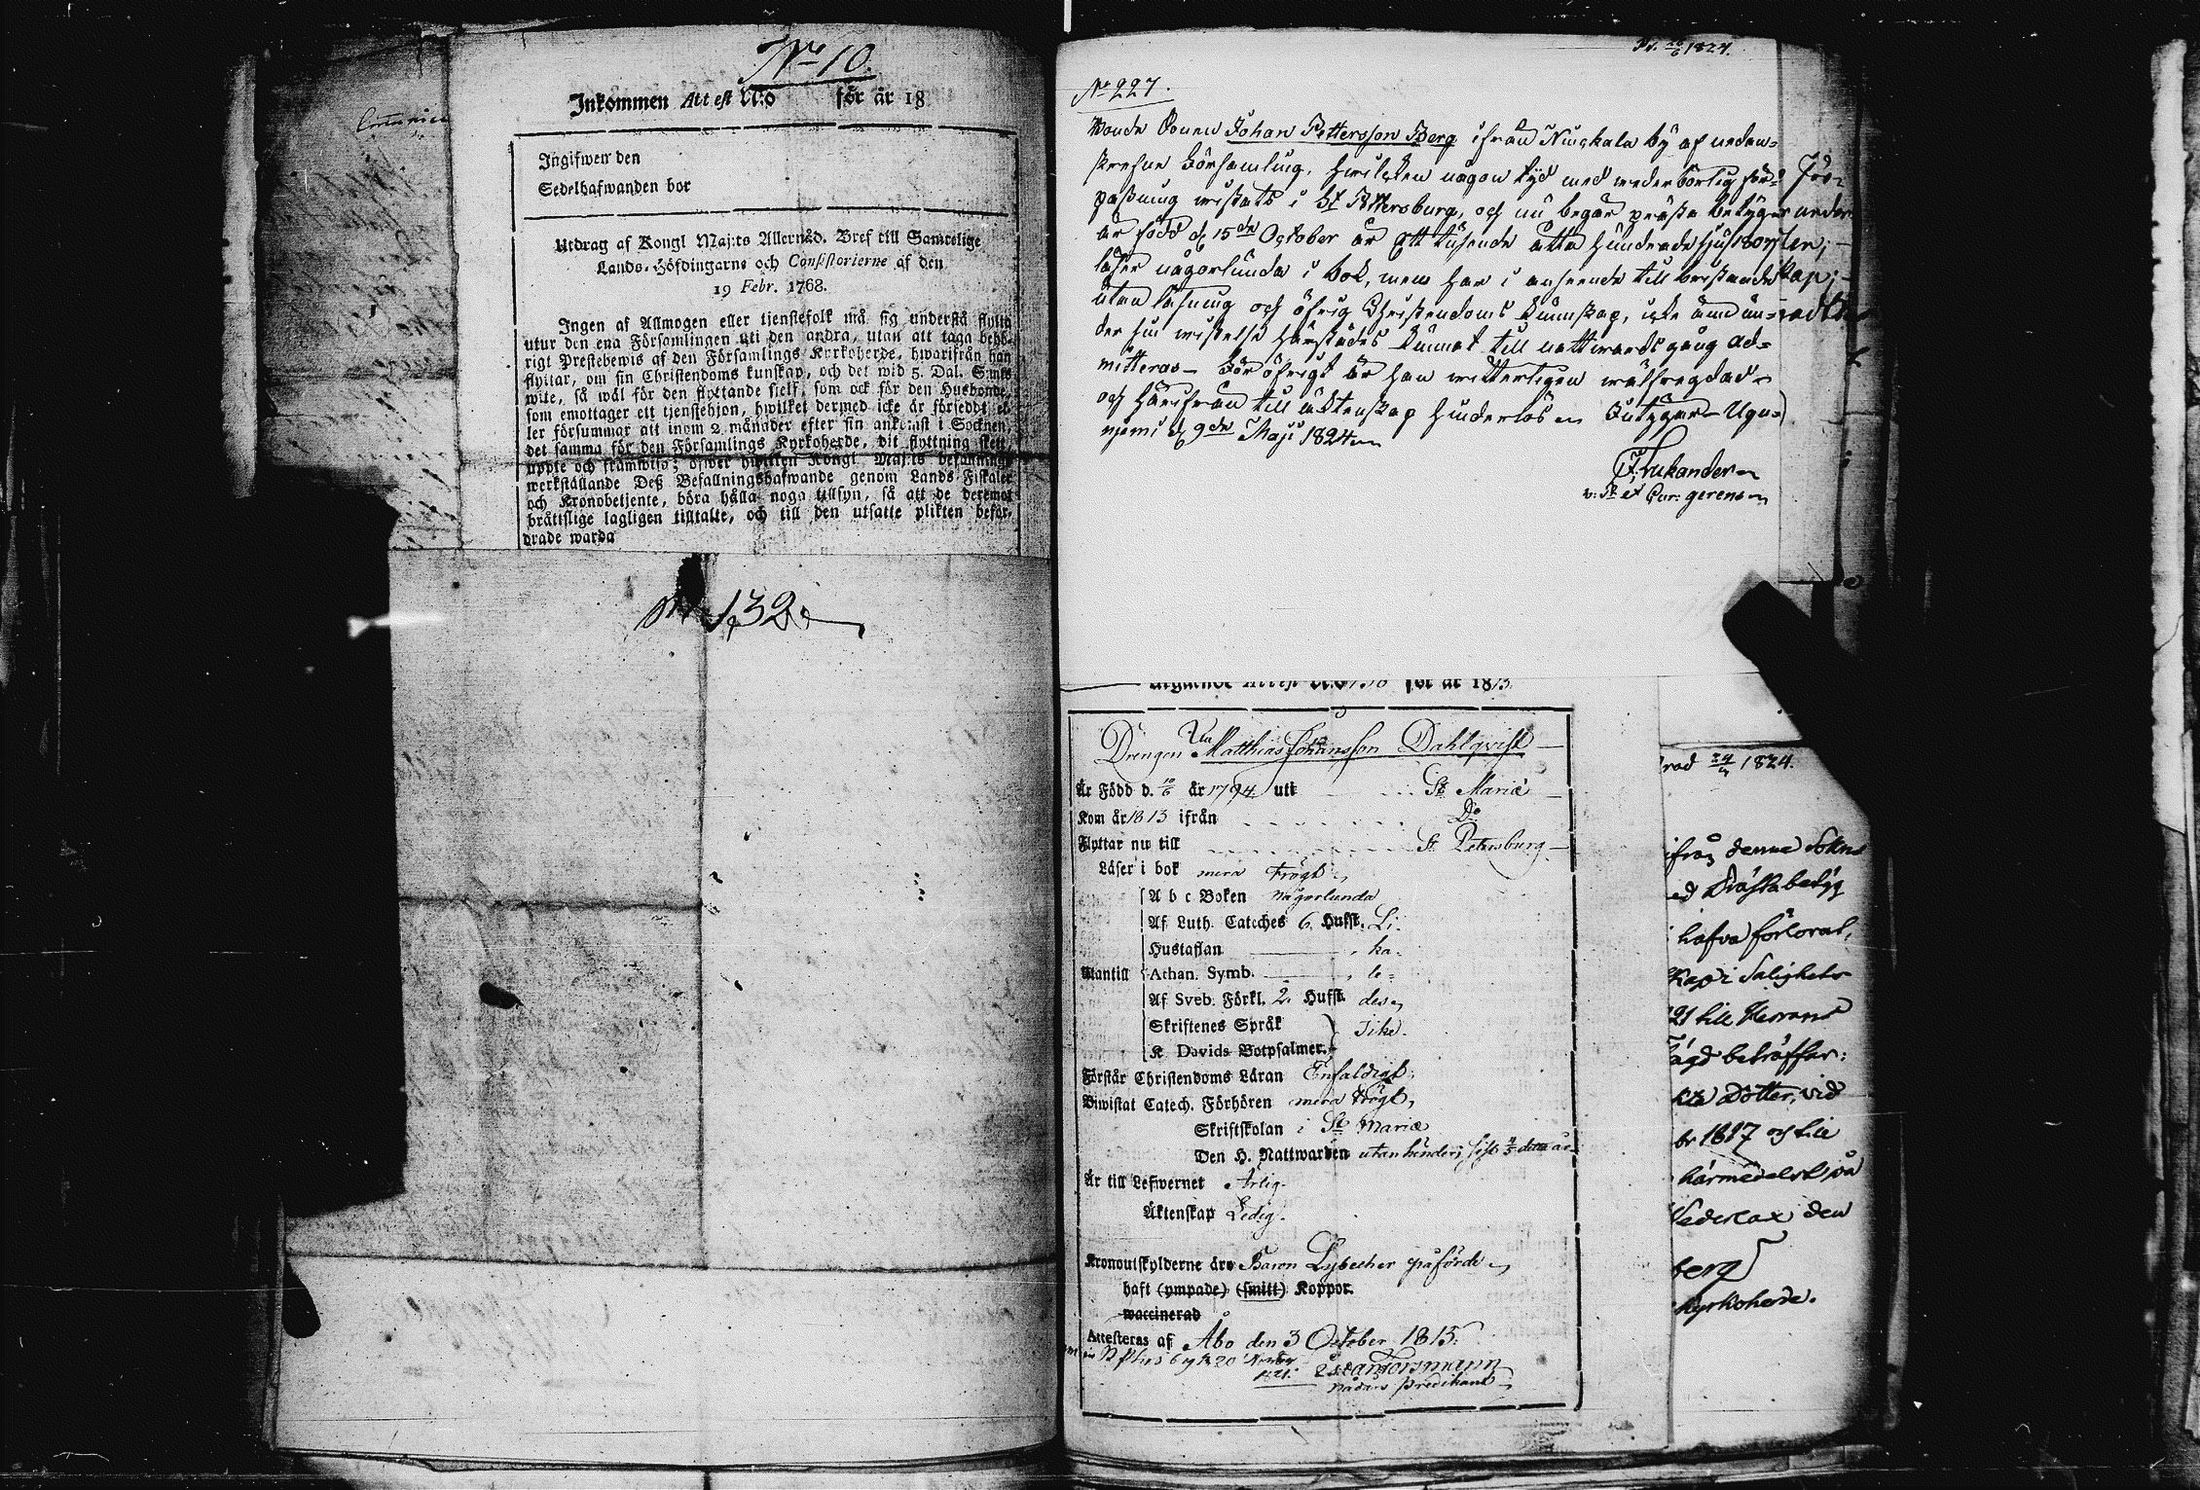 No 10.
Inkommen Attest N:o för år 18
Ingifwen den
Sedelhafwanden bor
Utdrag af Kongl Maj:ts Allernåd. Bref till Samtelige
Lands-Höfdingarne och Consistorierne af den
19 Febr. 1768.
Ingen af Allmogen eller tjenstefolk må sig understå flytta
utur den ena Församlingen uti den andra, utan att taga behö-
rigt Prestebewis af den Församlings Kyrkoherde, hwarifrån han
flyttar, om sin Christendoms kunskap, och det wid 5. Dal. S:mts
wite, så wäl för den flyttande sielf, som ock för den Husbonde,
som emottager ett tjenstehjon, hwilket dermed icke är försedt, el-
ler försummar att inom 2 månader efter sin ankomst i Socknen,
det samma för den Församlings Kyrkoherde, dit flyttning skett,
uppte och framwisa; öfwer hwilken Kongl Maj:ts befallnings
werkställande Deß Befallningshafwande genom Lands-Fiskaler
och Kronobetjente, böra hålla noga tillsyn, så att de deremot
bråttslige lagligen tilltalte, och till den utsatte plikten befor-
drade warda
No 132
Pr. 1824.
No 227.
Bonde Sonen Johan Pettersson Berg ifrån Ninckala by af nedan-
skrefne Församling, hwilken någon tid med wederbörlig för-
paßning wistats i St Petersburg, och nu begär präste betyg
är född d. 15de October år Ett tusende åtta hundrade sju 1807
läser någorlunda i bok, men har i anseende till bristande
utan läsning och öfrig Christendoms kunskap, icke ännu un-
der sin wistelse härstädes kunnat till nattwards gång ad-
mitteras- För öfrigt är han witterligen wälfregdad
och härifrån till äktenskap hinderlös Betygar- Ugu-
niemi d. 9de Maji 1824
Frukander
v: P. et Cur: gerens
för år 1813.
Drengen Matthias Johansson Dahlqvist
Är Född d. 10/6 år 1794 uti St Mariæ
Kom år 1813 ifrån Do
Flyttar nu till St Petersburg
Läser i bok mera trögt
A b c Boken någorlunda
Af Luth. Cateches 6. Hufst. Li-
Hustaflan ka-
Utantill Athan. Symb. le-
Af Sveb. Förkl. 2. Hufst. des
Skriftenes Språk
K Davids Botpsalmer. Icke
Förstår Christendoms Läran Enfaldigt
Biwistat Catech. Förhören mera trögt,
Skriftskolan i St Mariæ
Den H. Nattwarden utan hinder, sist detta år
Är till Lefwernet Ärlig
Äktenskap Ledig.
Kronoutskylderne äro Baron Lybecker påförde
haft (ympade) (smitt) Koppor.
waccinerad
Attesteras af Åbo den 3 October 1813.
Forsmann
Nådårs Predikant
1824.
ifrån denna Sokns
ed Prästabetyg
hafva förlorat,
kap i Salighets
21 till Herrans
ägd beträffar:
Dotter, vid
1817 och till
härmedelst på
Vederlax den
berg
Kyrkoherde.